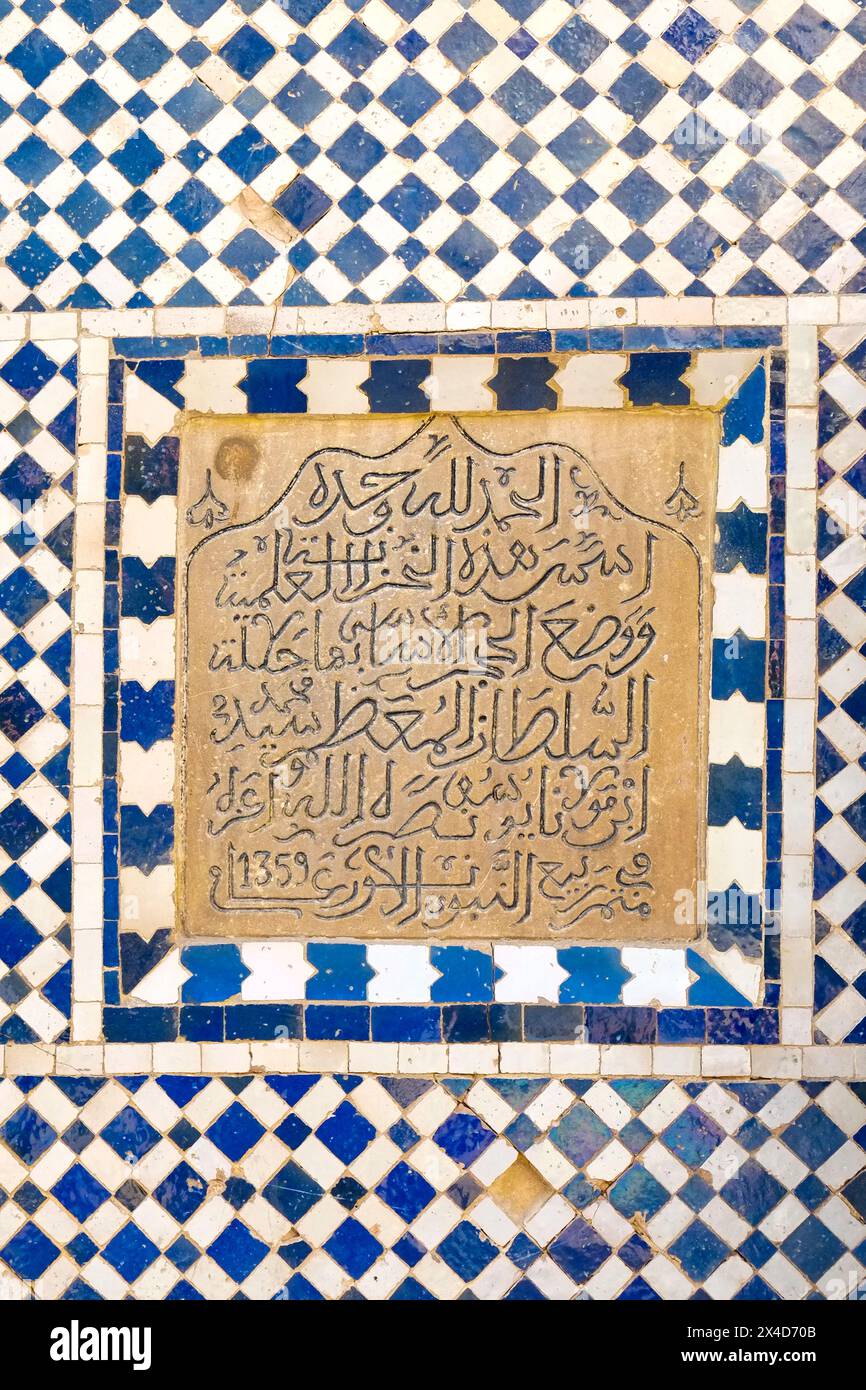 الحمد لله وحده
اسست هذه الخزانة العلمية
ووضع الحجر الأساسي بها جلالة
السّلطان المعظم سيدي محمد
ابن مولانا يوسف نصره الله واعزه
في متم ربيع النبوي الانور عام 1359
alamy
alamy
Image ID: 2X4D70B
www.alamy.com